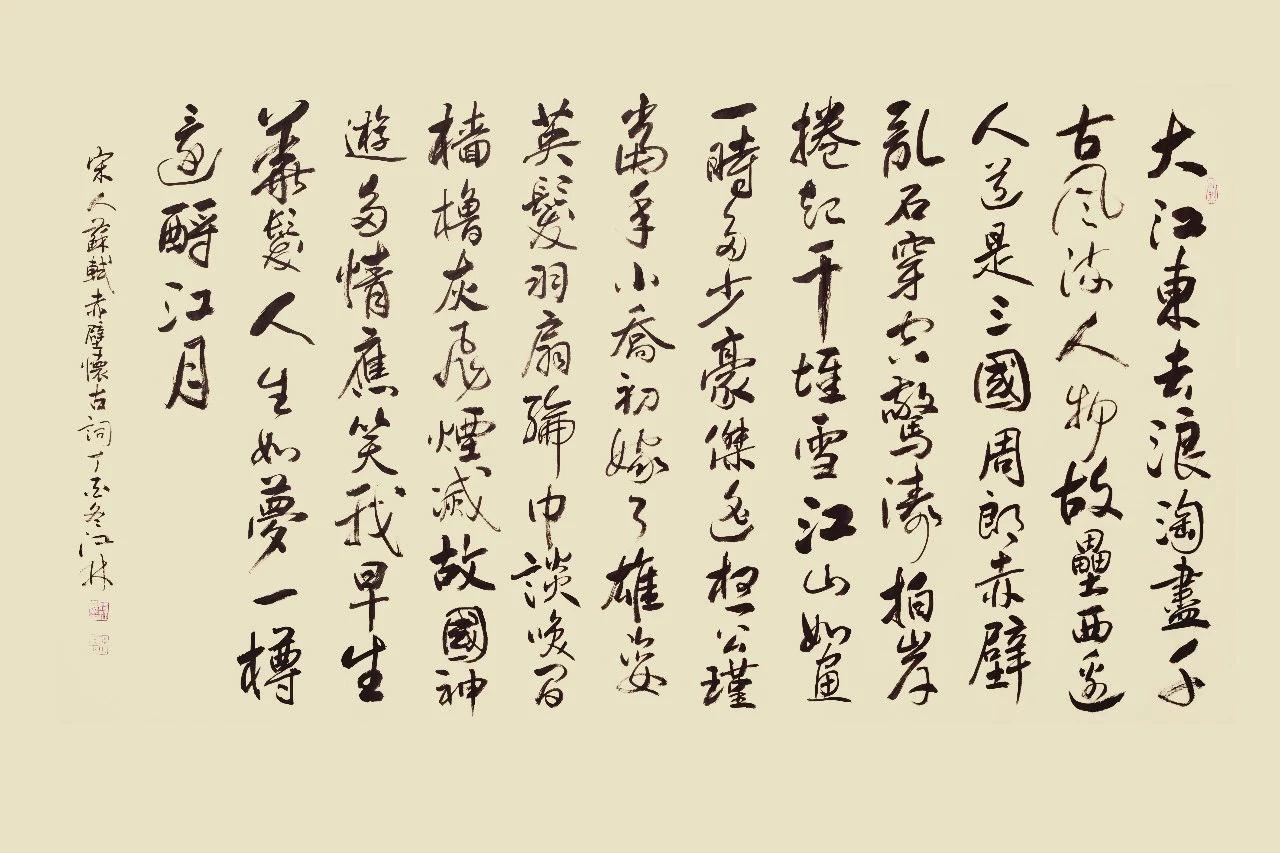 大江東去浪淘盡千
古風流人物故壘西邊
人道是三國周郎赤壁
亂石穿空驚濤拍岸
捲起千堆雪江山如畫
一時多少豪傑遙想公瑾
當年小喬初嫁了雄姿
英發羽扇綸巾談笑間
檣櫓灰飛煙滅故國神
遊多情應笑我早生
華髮人生如夢一樽
還酹江月
宋人蘇軾赤壁懷古詞丁酉冬江林